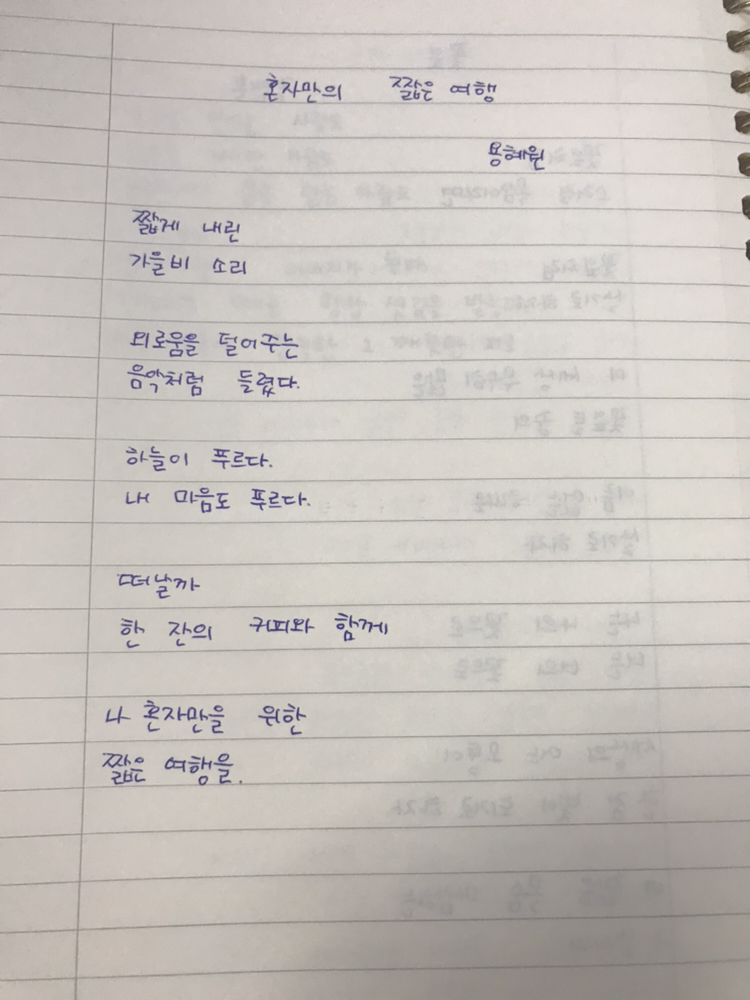 혼자만의 짧은 여행
용혜원
짧게 내린
가을비 소리
외로움을 덜어주는
음악처럼 들렸다.
하늘이 푸르다.
내 마음도 푸르다.
떠날까
한 잔의 커피와 함께
나 혼자만을 위한
짧은 여행을.